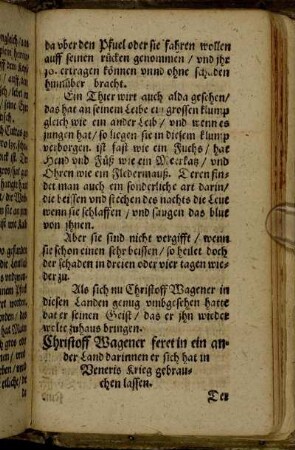 da vber den Pfuel oder sie fahren wollen
auff seinen rücken genommen / vnd jhr
zo ertragen können vnnd ohne schaden
hinüber bracht.
Ein Thier wirt auch alda gesehen /
das hat an seinem Leibe ein grossen klump
gleich wie ein ander Leib / vnd wenn es
jungen hat / so liegen sie in diesem klump
verborgen. ist fast wie ein Fuchs / hat
Hend vnd Füß wie ein Meerkatz / vnd
Ohren wie ein Fledermauß. Deren fin-
det man auch ein sonderliche art darin /
die beissen vnd stechen des nachts die Leut
wenn sie schlaffen / vnd saugen das blut
von jhnen.
Aber sie sind nicht vergifft / wenn
sie schon einen sehr beissen / so heilet doch
der schaden in dreien oder vier tagen wie-
der zu.
Als sich nu Christoff Wagener in
diesen Landen genug vmbgesehen hatte
bat er seinen Geist / das er jhn wieder
wolte zuhaus bringen.
Christoff Wagener feret in ein an-
der Land darinnen er sich hat in
Veneris Krieg gebrau-
chen lassen.
Der